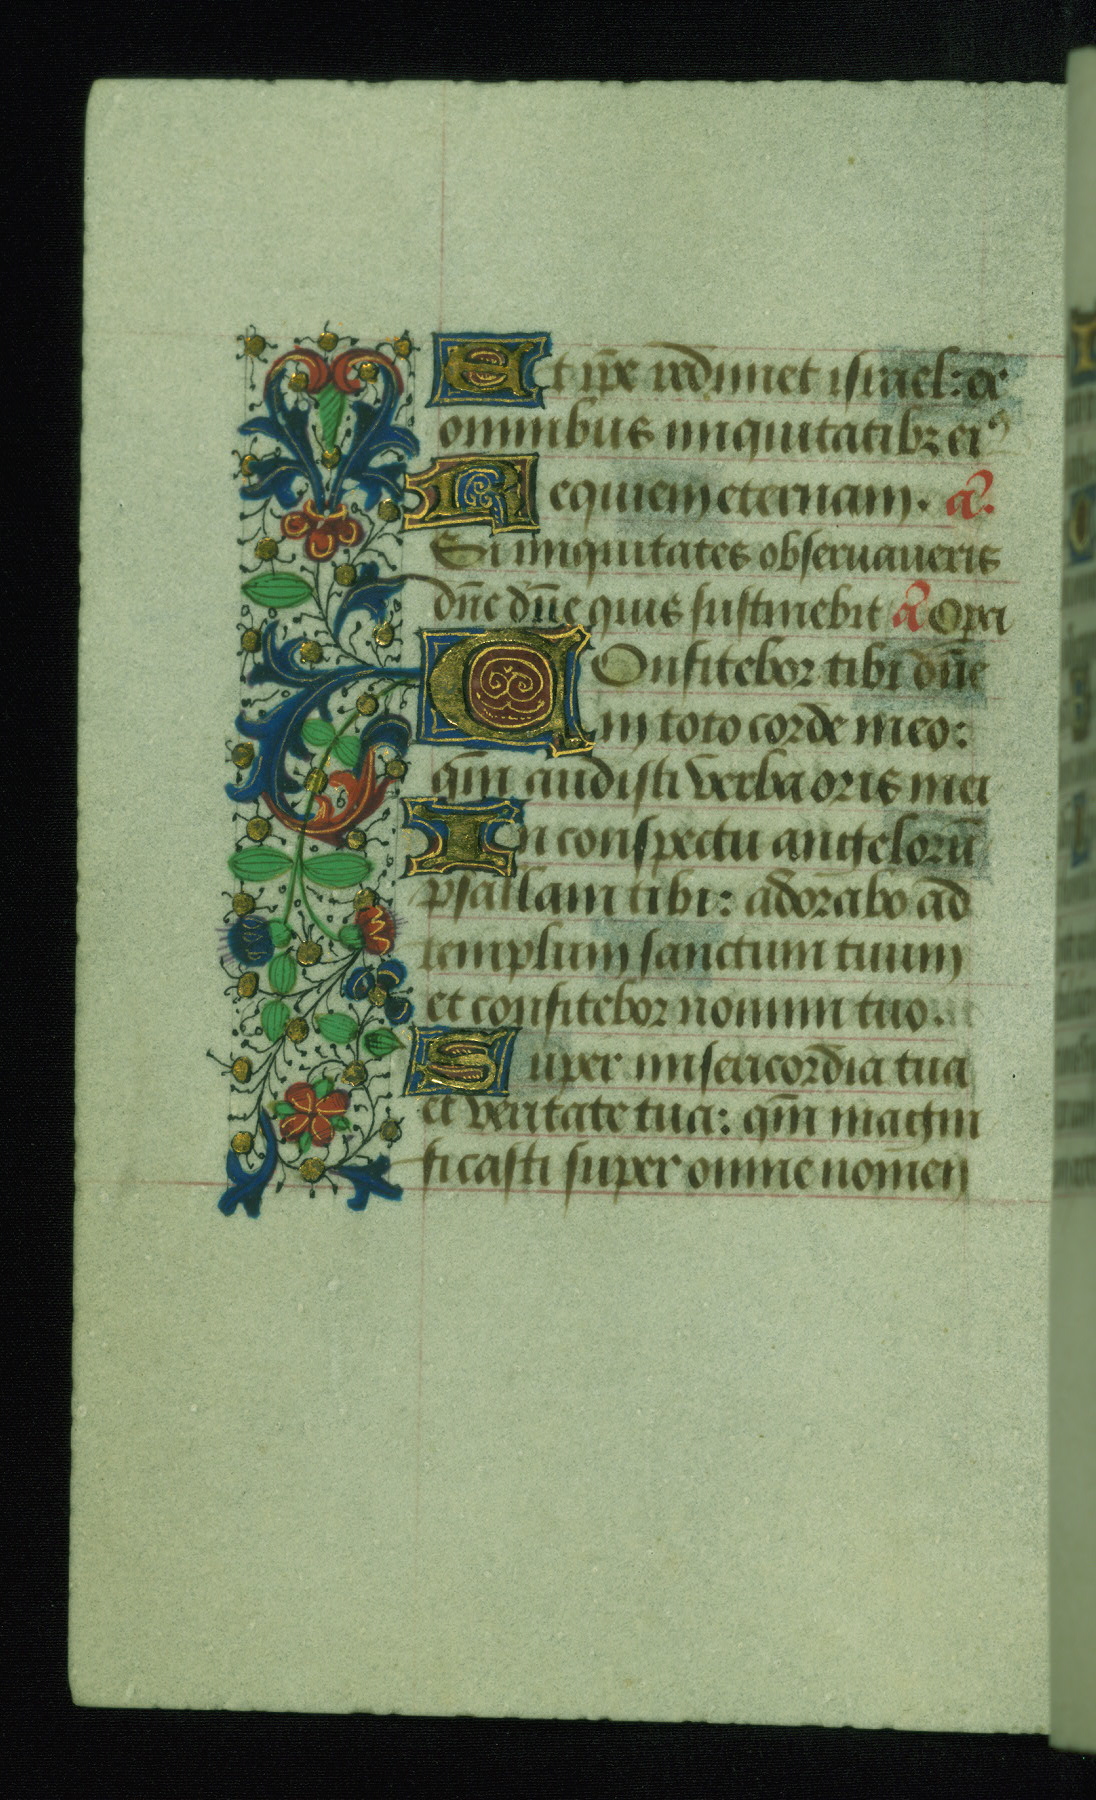 Et ip̄e redimet israel: ex
omnibus iniquitatibꝫ eiꝰ
Requiem eternam. a͛.
Si iniquitates obseruaueris
dn̄e dn̄e quis sustinebit a͛ Opa
COnfitebor tibi dn̄e
in toto corde meo:
qm̄ audisti verba oris mei
In conspectu angelorū
psallam tibi: adorabo ad
templum sanctum tuum
et confitebor nomini tuo.
Super misericordia tua
et veritate tua: qm̄ magni
ficasti super omne nomen